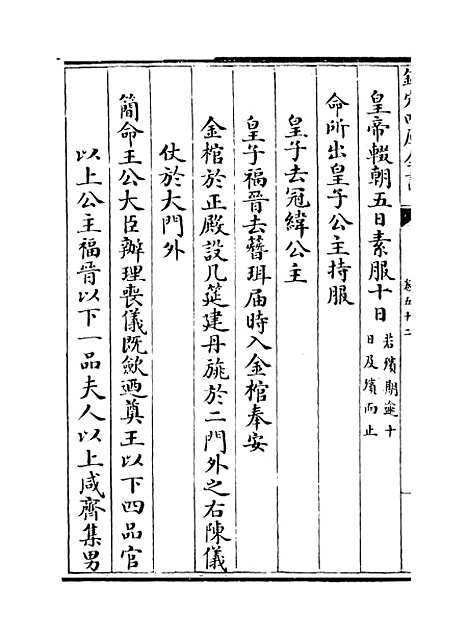 欽定四庫全書
卷五十二
皇帝輟朝五日素服十日若殯期逾十
日及殯而止
命所出皇子公主持服
皇子去冠緯公主
皇子福晉去簪珥届時入金棺奉安
金棺於正殿設几筵建丹旐於二門外之右陳儀
仗於大門外
簡命王公大臣辦理喪儀既歛廼奠王以下四品官
以上公主福晉以下一品夫人以上咸齊集男